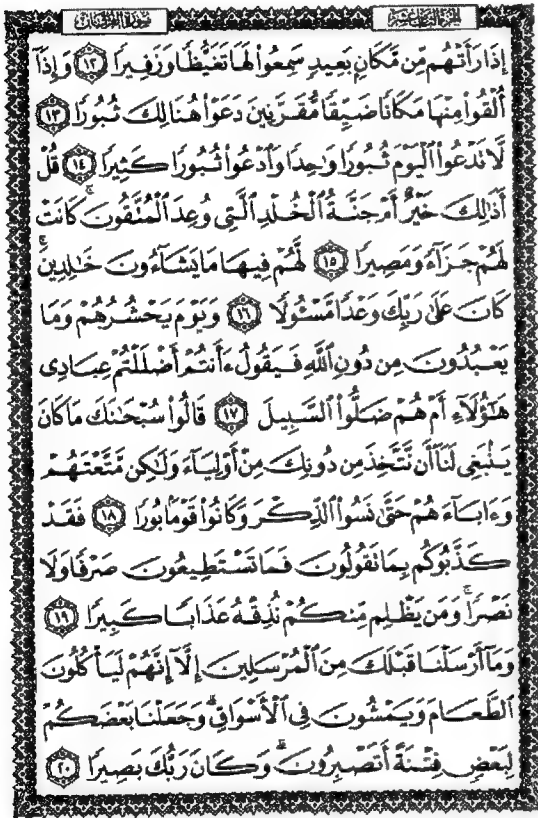 سورة الفرقان الجزء الثامن عشر
إِذَا رَأَتْهُم مِّن مَّكَانٍ بَعِيدٍ سَمِعُوا۟ لَهَا تَغَيُّظًا وَزَفِيرًا ١٢ وَإِذَآ
أُلْقُوا۟ مِنْهَا مَكَانًا ضَيِّقًا مُّقَرَّنِينَ دَعَوْا۟ هُنَالِكَ ثُبُورًا ١٣
لَّا تَدْعُوا۟ ٱلْيَوْمَ ثُبُورًا وَٰحِدًا وَٱدْعُوا۟ ثُبُورًا كَثِيرًا ١٤ قُلْ
أَذَٰلِكَ خَيْرٌ أَمْ جَنَّةُ ٱلْخُلْدِ ٱلَّتِى وُعِدَ ٱلْمُتَّقُونَ ۚ كَانَتْ
لَهُمْ جَزَآءً وَمَصِيرًا ١٥ لَّهُمْ فِيهَا مَا يَشَآءُونَ خَٰلِدِينَ ۚ
كَانَ عَلَىٰ رَبِّكَ وَعْدًا مَّسْـُٔولًا ١٦ وَيَوْمَ يَحْشُرُهُمْ وَمَا
يَعْبُدُونَ مِن دُونِ ٱللَّهِ فَيَقُولُ ءَأَنتُمْ أَضْلَلْتُمْ عِبَادِى
هَٰٓؤُلَآءِ أَمْ هُمْ ضَلُّوا۟ ٱلسَّبِيلَ ١٧ قَالُوا۟ سُبْحَٰنَكَ مَا كَانَ
يَنۢبَغِى لَنَآ أَن نَّتَّخِذَ مِن دُونِكَ مِنْ أَوْلِيَآءَ وَلَٰكِن مَّتَّعْتَهُمْ
وَءَابَآءَهُمْ حَتَّىٰ نَسُوا۟ ٱلذِّكْرَ وَكَانُوا۟ قَوْمًۢا بُورًا ١٨ فَقَدْ
كَذَّبُوكُم بِمَا تَقُولُونَ فَمَا تَسْتَطِيعُونَ صَرْفًا وَلَا
نَصْرًا ۚ وَمَن يَظْلِم مِّنكُمْ نُذِقْهُ عَذَابًا كَبِيرًا ١٩
وَمَآ أَرْسَلْنَا قَبْلَكَ مِنَ ٱلْمُرْسَلِينَ إِلَّآ إِنَّهُمْ لَيَأْكُلُونَ
ٱلطَّعَامَ وَيَمْشُونَ فِى ٱلْأَسْوَاقِ ۗ وَجَعَلْنَا بَعْضَكُمْ
لِبَعْضٍ فِتْنَةً أَتَصْبِرُونَ ۗ وَكَانَ رَبُّكَ بَصِيرًا ٢٠